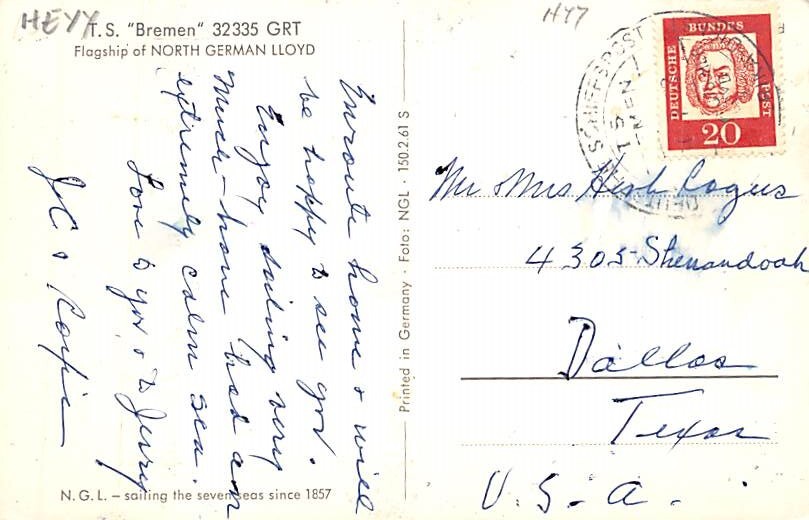 HEYY
T.S. "Bremen" 32335 GRT
Flagship of NORTH GERMAN LLOYD
Enroute home & will
be happy to see you.
Enjoy sailing very
much - have had an
extremely calm sea.
Love to you & to Jerry
JC &
Printed in Germany · Foto: NGL · 150.2.61 S
N.G.L. – sailing the seven seas since 1857
HYY
DEUTSCHE
BUNDES
POST
20
SCHIFFSPOST
Mr & Mrs
4305 Shenandoah
Dallas
Texas
U.S.A.